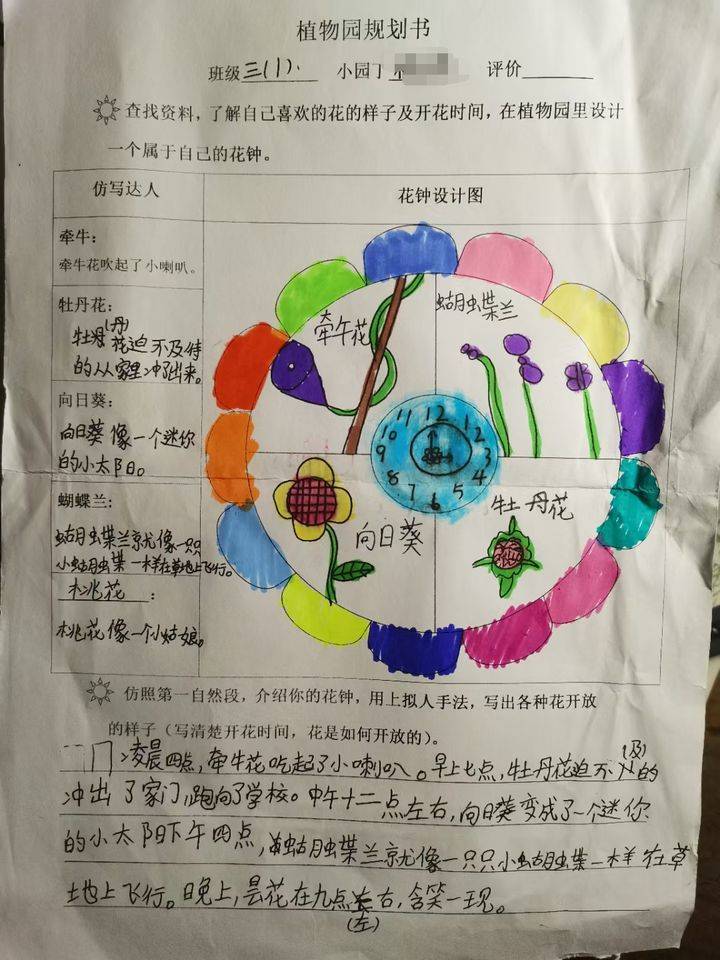 植物园规划书
班级三(1). 小园丁 评价
查找资料，了解自己喜欢的花的样子及开花时间，在植物园里设计
一个属于自己的花钟。
仿写达人 花钟设计图
牵牛：
牵牛花吹起了小喇叭。
牡丹花：
(丹)
牡丹花迫不及待
的从家里冲出来。
向日葵：
向日葵像一个迷你
的小太阳。
蝴蝶兰：
蝴蝶兰就像一只
小蝴蝶一样在草地上飞行。
桃花：
桃花像一个小姑娘。
牵午花
蝴蝶兰
11 12 12
10 3
9 4
8 7 6 5
向日葵
牡丹花
仿照第一自然段，介绍你的花钟，用上拟人手法，写出各种花开放
的样子（写清楚开花时间，花是如何开放的）。
凌晨四点，牵牛花吃起了小喇叭。早上七点，牡丹花迫不(及)的
冲出了家门，跑向了学校。中午十二点左右，向日葵变成了一个迷你
的小太阳下午四点，蝴蝶兰就像一只只小蝴蝶一样在草
地上飞行。日晚上，昙花在九点左右，含笑一现。
(左)